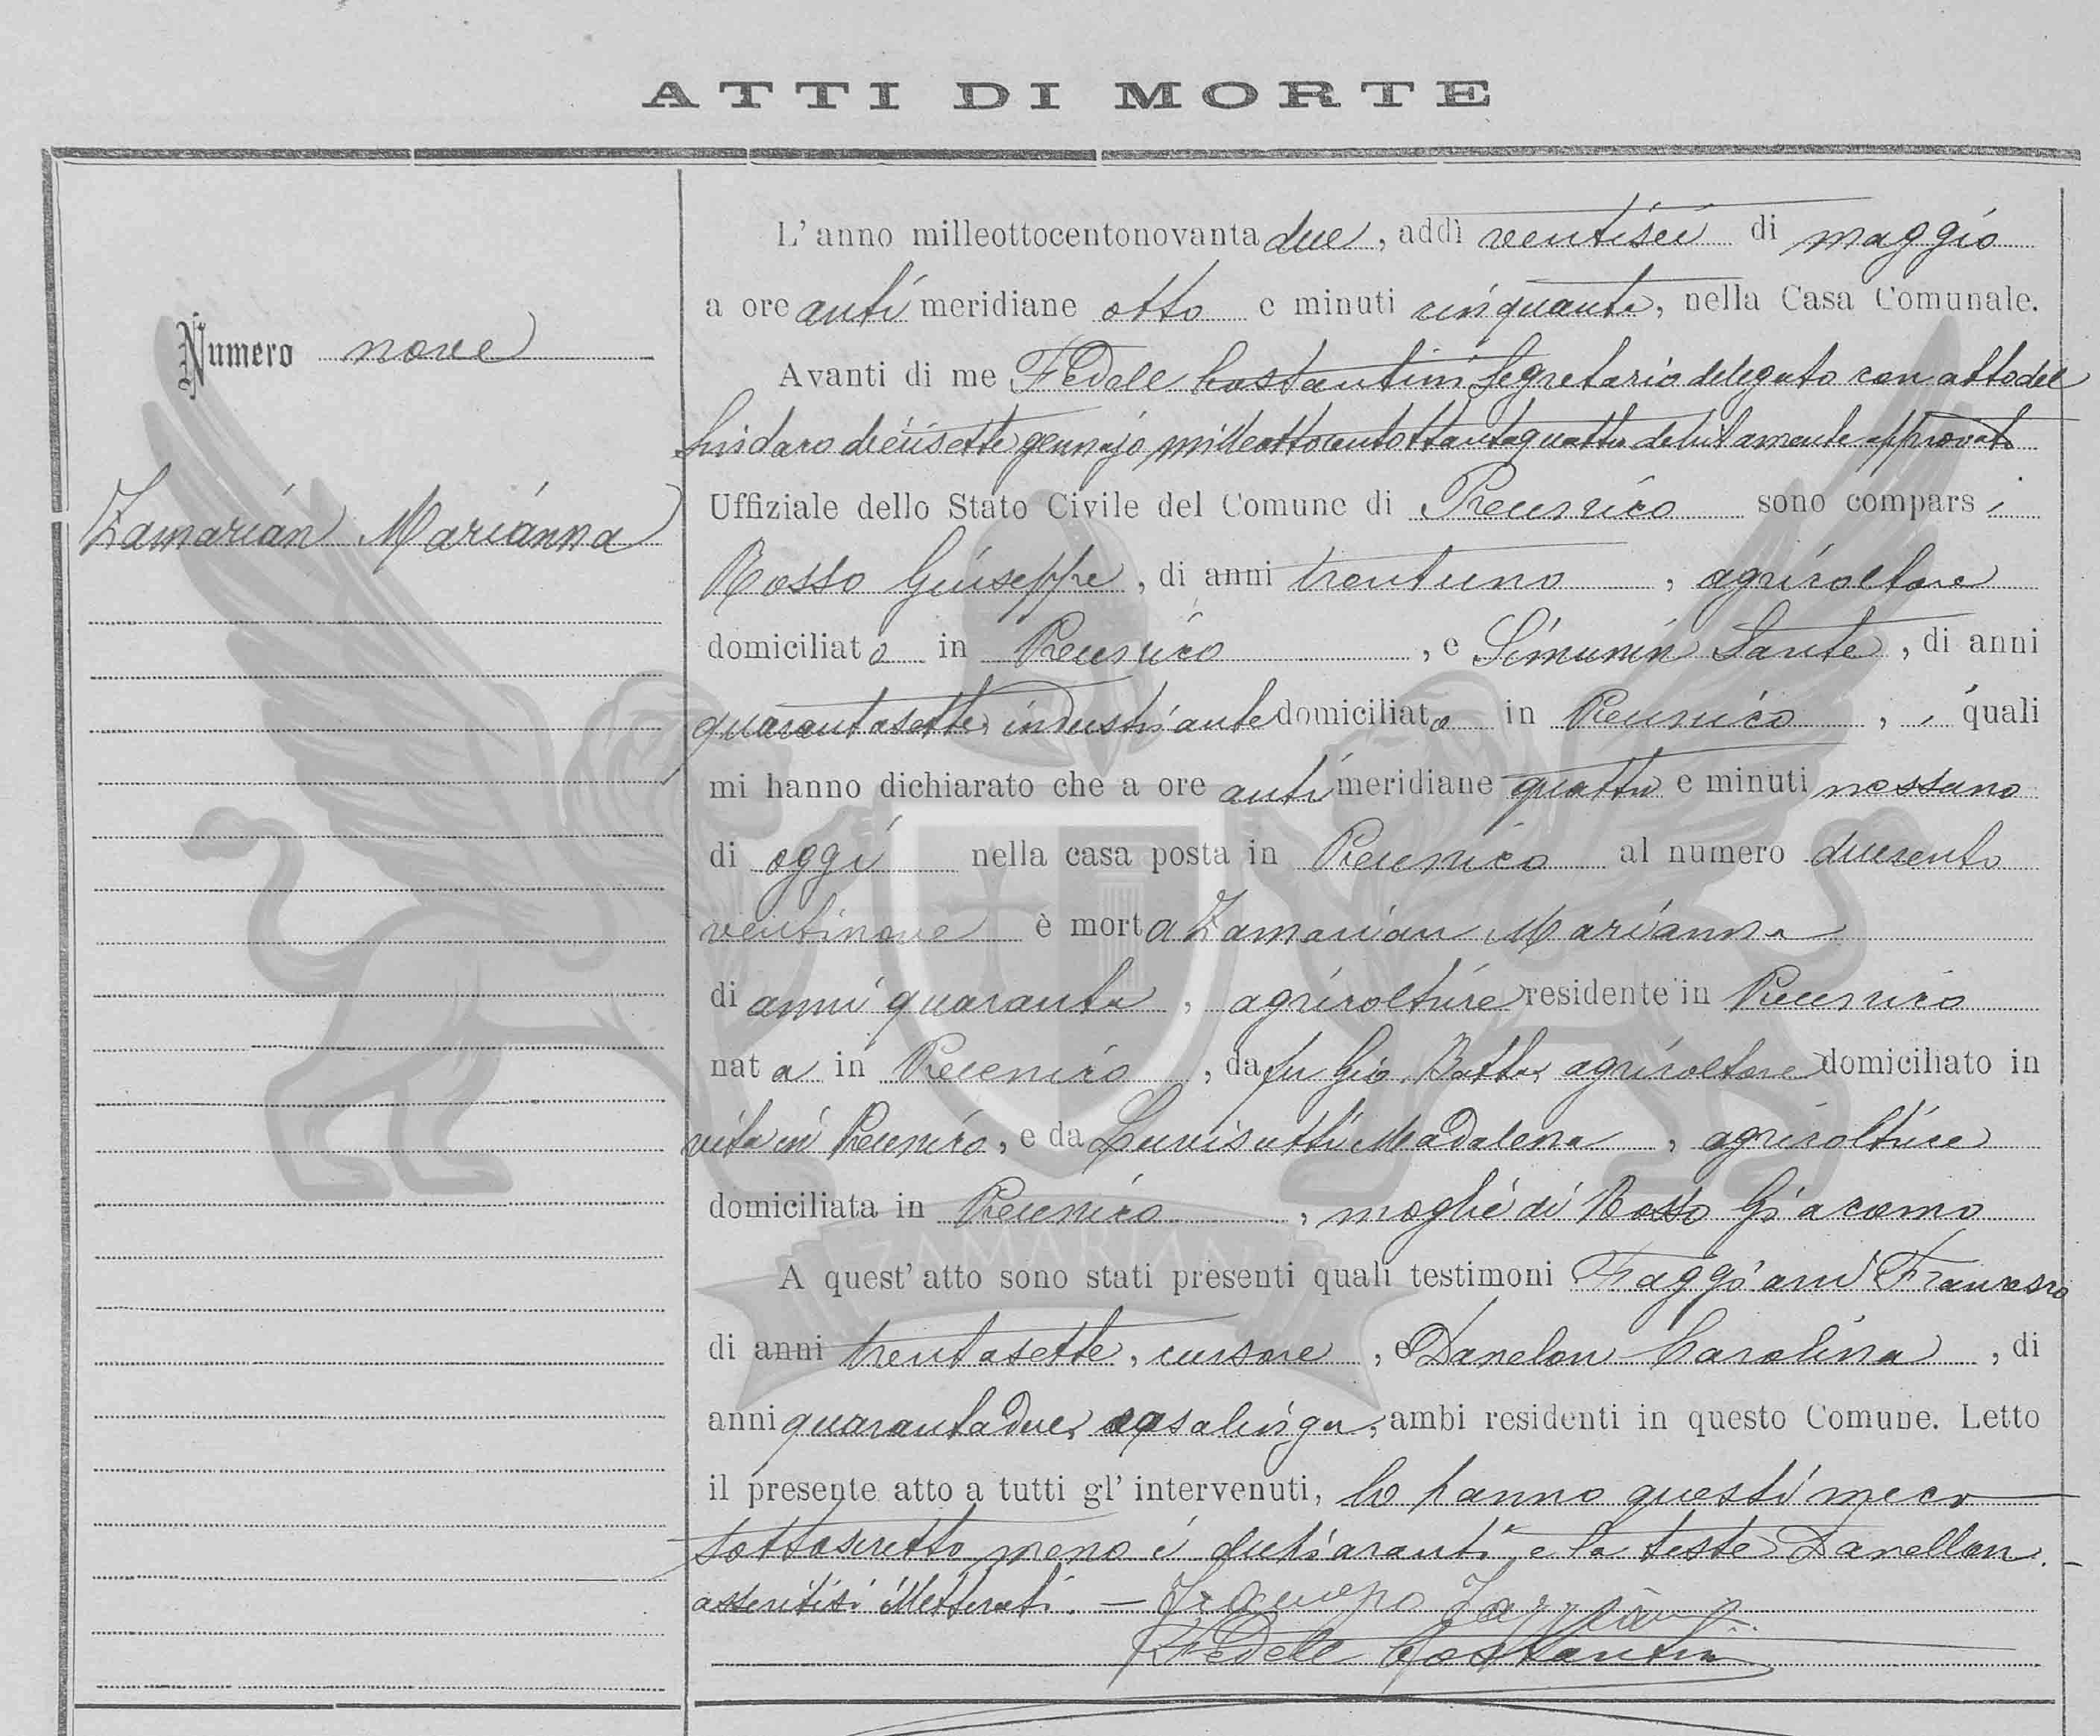 ATTI DI MORTE
Numero nove
Zamarian Marianna
L'anno milleottocentonovanta due, addì ventisei di maggio
a ore anti meridiane otto e minuti cinquanta, nella Casa Comunale.
Avanti di me Fedele Costantini Segretario delegato con atto del
Sindaco dieciisette gennajo milleottocentottantaquattro debitamente approvato
Uffiziale dello Stato Civile del Comune di Precenico sono compars i
Rosso Giuseppe, di anni trentuno, agricoltore
domiciliato in Precenico, e Simunin Sante, di anni
quarantasette, industriante domiciliato in Precenico, i quali
mi hanno dichiarato che a ore anti meridiane quattro e minuti nessuno
di oggi nella casa posta in Precenico al numero duecento
ventinove è morta Zamarian Marianna
di anni quaranta, agricoltrice residente in Precenico
nata in Precenico, da fu Gio. Batta, agricoltore domiciliato in
vita in Precenico, e da Luvisutti Madalena, agricoltrice
domiciliata in Precenico, moglie di Rosso Giacomo
ZAMARIAN
A quest' atto sono stati presenti quali testimoni Faggiani Francesco
di anni trentasette, cursore, e Danelon Carolina, di
anni quarantadue, casalinga, ambi residenti in questo Comune. Letto
il presente atto a tutti gl' intervenuti, lo hanno questi meco
sottoscritto meno i dichiaranti e la teste Danellon.
asseritisi illetterati. — Francesco Faggiani
Fedele Costantini